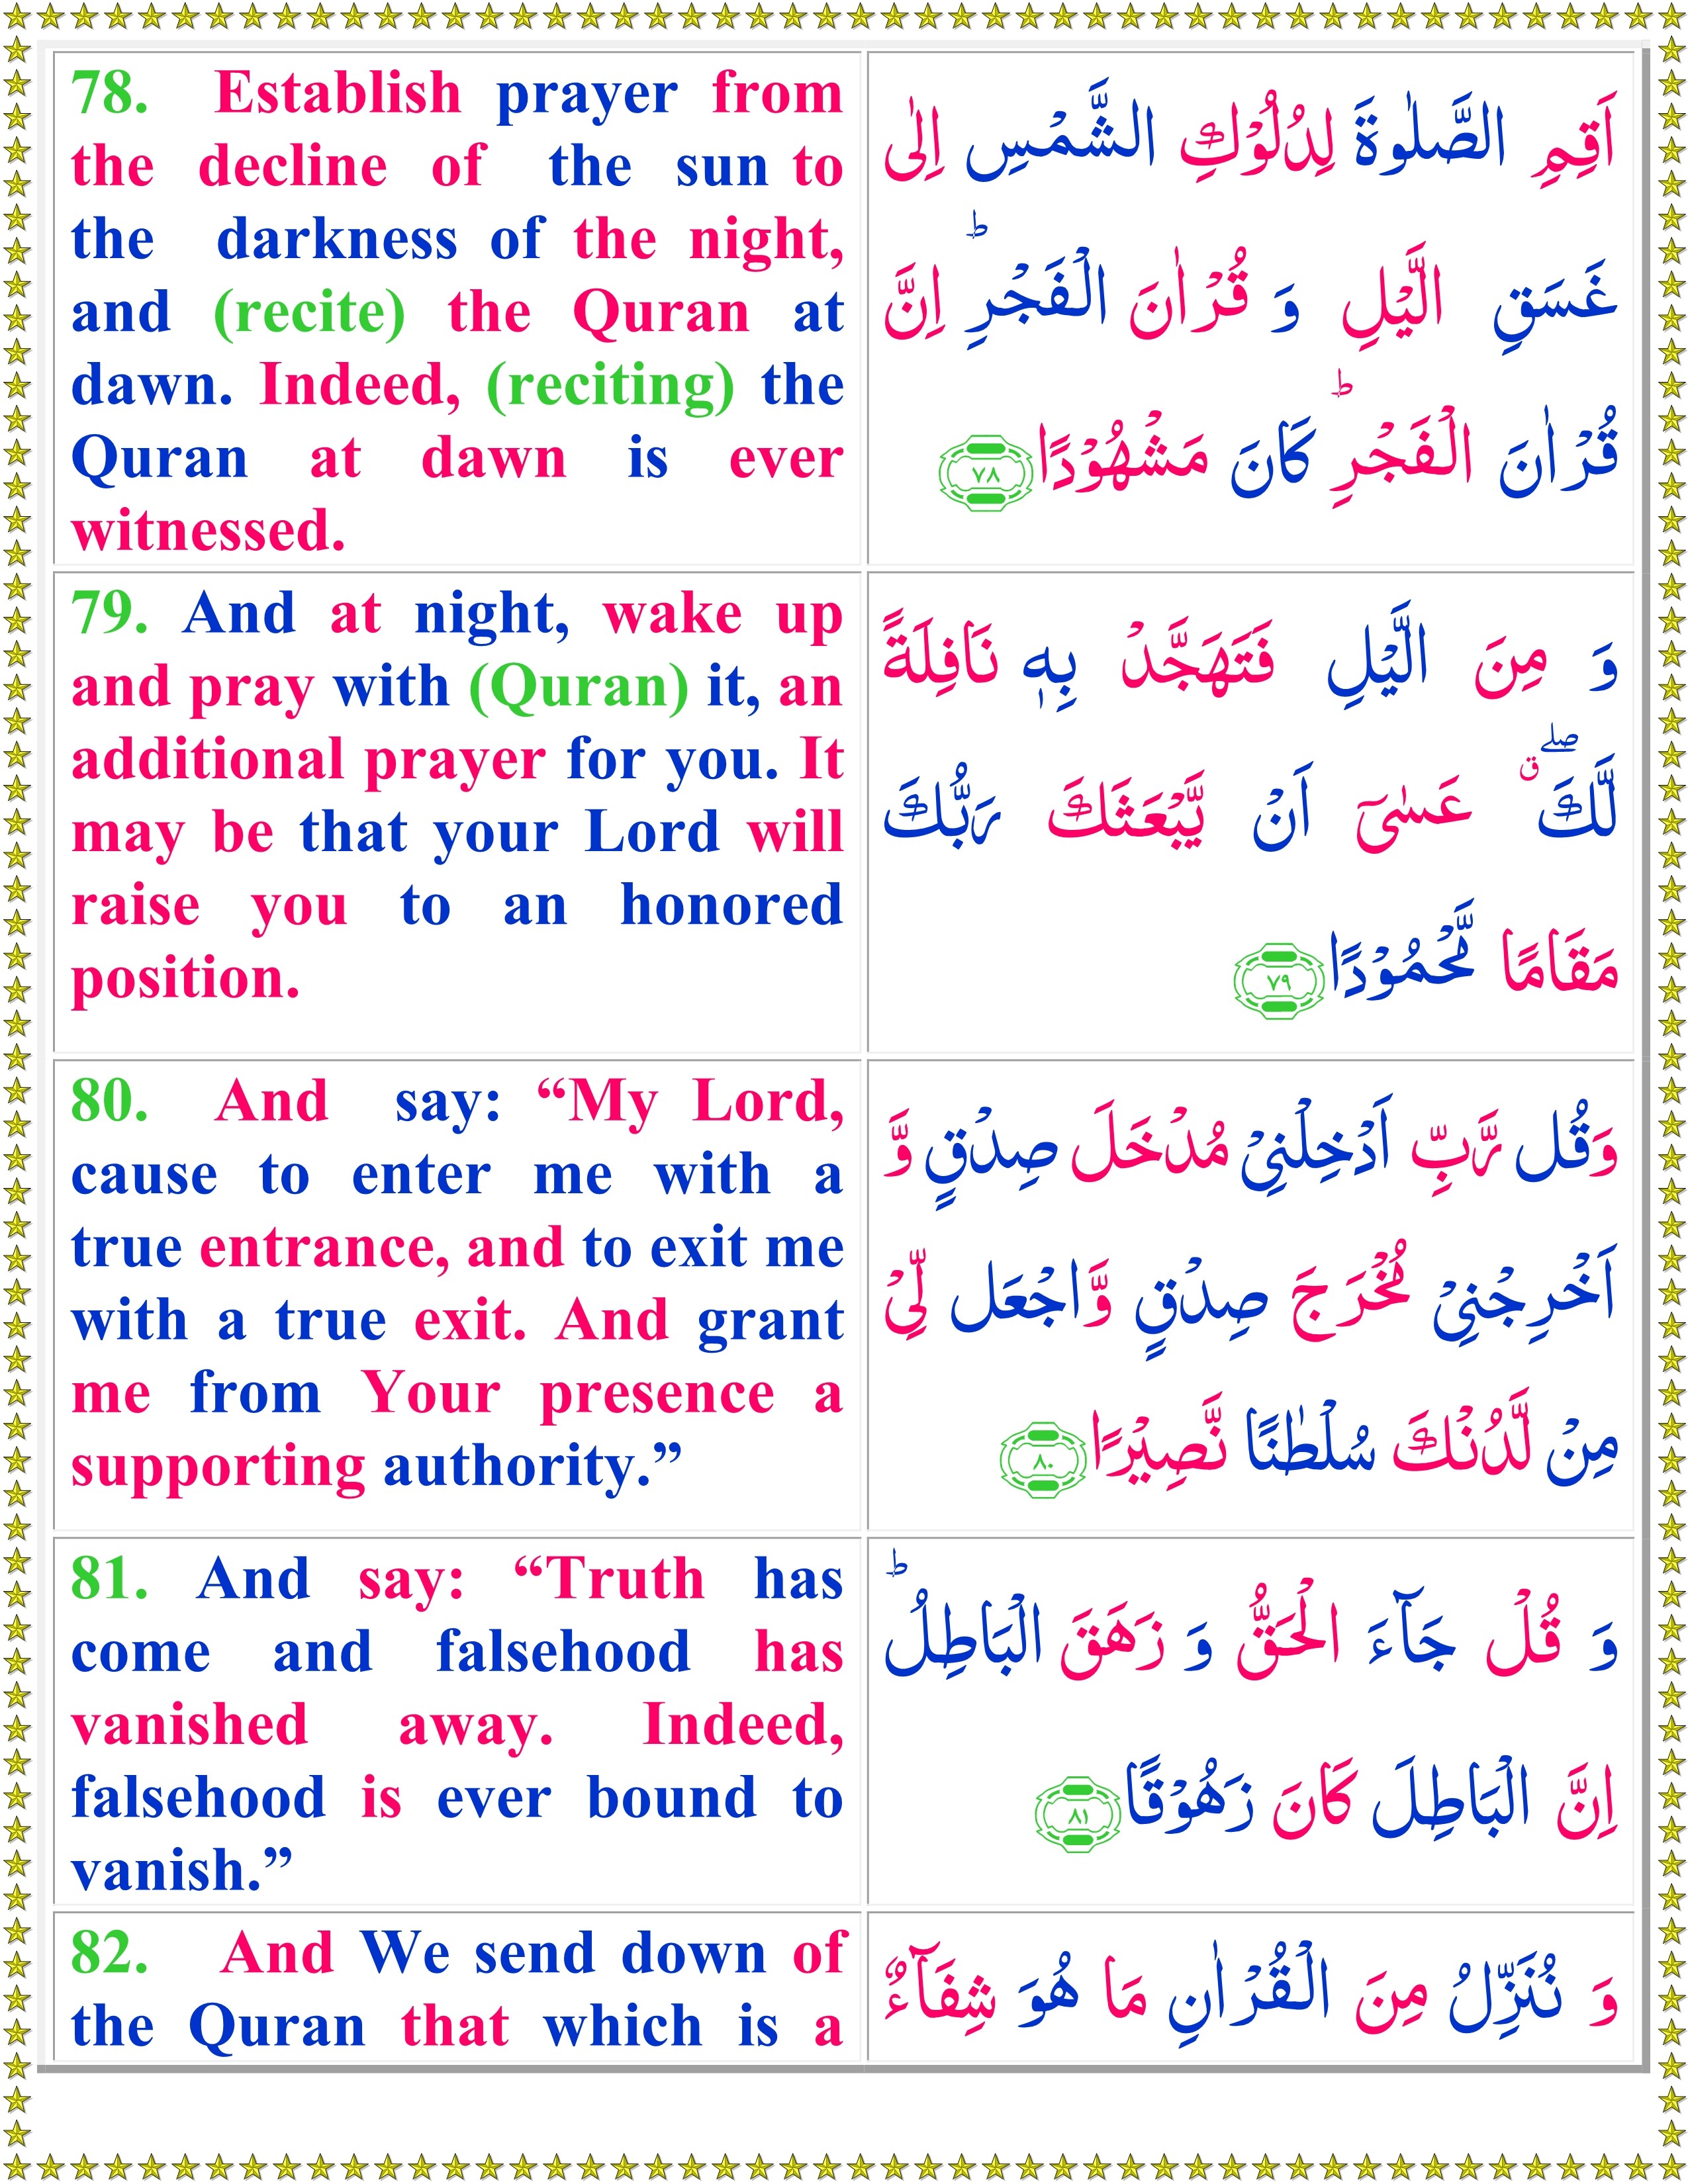 78. Establish prayer from
the decline of the sun to
the darkness of the night,
and (recite) the Quran at
dawn. Indeed, (reciting) the
Quran at dawn is ever
witnessed.
اَقِمِ الصَّلٰوةَ لِدُلُوْكِ الشَّمْسِ اِلٰى
غَسَقِ الَّيْلِ وَ قُرْاٰنَ الْفَجْرِ ؕ اِنَّ
قُرْاٰنَ الْفَجْرِ ؕ كَانَ مَشْهُوْدًا ٧٨
79. And at night, wake up
and pray with (Quran) it, an
additional prayer for you. It
may be that your Lord will
raise you to an honored
position.
وَ مِنَ الَّيْلِ فَتَهَجَّدْ بِهٖ نَافِلَةً
لَّكَ ۖۗ عَسٰىٓ اَنْ يَّبْعَثَكَ رَبُّكَ
مَقَامًا مَّحْمُوْدًا ٧٩
80. And say: “My Lord,
cause to enter me with a
true entrance, and to exit me
with a true exit. And grant
me from Your presence a
supporting authority.”
وَقُل رَّبِّ اَدْخِلْنِىْ مُدْخَلَ صِدْقٍ وَّ
اَخْرِجْنِىْ مُخْرَجَ صِدْقٍ وَّاجْعَل لِّىْ
مِنْ لَّدُنْكَ سُلْطٰنًا نَّصِيْرًا ٨٠
81. And say: “Truth has
come and falsehood has
vanished away. Indeed,
falsehood is ever bound to
vanish.”
وَ قُلْ جَآءَ الْحَقُّ وَ زَهَقَ الْبَاطِلُ ؕ
اِنَّ الْبَاطِلَ كَانَ زَهُوْقًا ٨١
82. And We send down of
the Quran that which is a
وَ نُنَزِّلُ مِنَ الْقُرْاٰنِ مَا هُوَ شِفَآءٌ